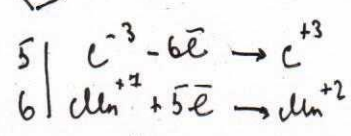 5 | C⁻³ - 6ē → C⁺³
6 | Mn⁺⁷ + 5ē → Mn⁺²